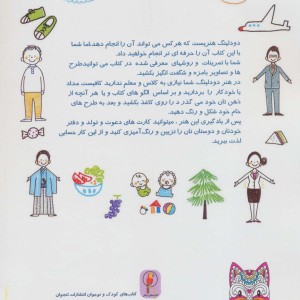 دودلینگ هنریست که هر کس می تواند آن را انجام دهد.اما شما
با این کتاب آن را حرفه ای تر انجام خواهید داد.
شما با تمرینات و روشهای معرفی شده در کتاب می توانیدطرح
ها و تصاویر بامزه و شگفت انگیز بکشید.
در هنر دودلینگ شما نیازی به کلاس و معلم ندارید کافیست مداد
یا خودکار را بردارید و بر اساس الگو های کتاب و یا هر آنچه از
ذهن تان خود می گذرد را روی کاغذ بکشید و بعد به طرح های
خام خود شکل و رنگ دهید.
پس از یادگیری این هنر ، میتوانید کارت های دعوت و تولد و دفتر
خودتان و دوستان تان را تزیین و رنگ‌آمیزی کنید و از این کار حسابی
لذت ببرید.
کتاب‌های کودک و نوجوان انتشارات